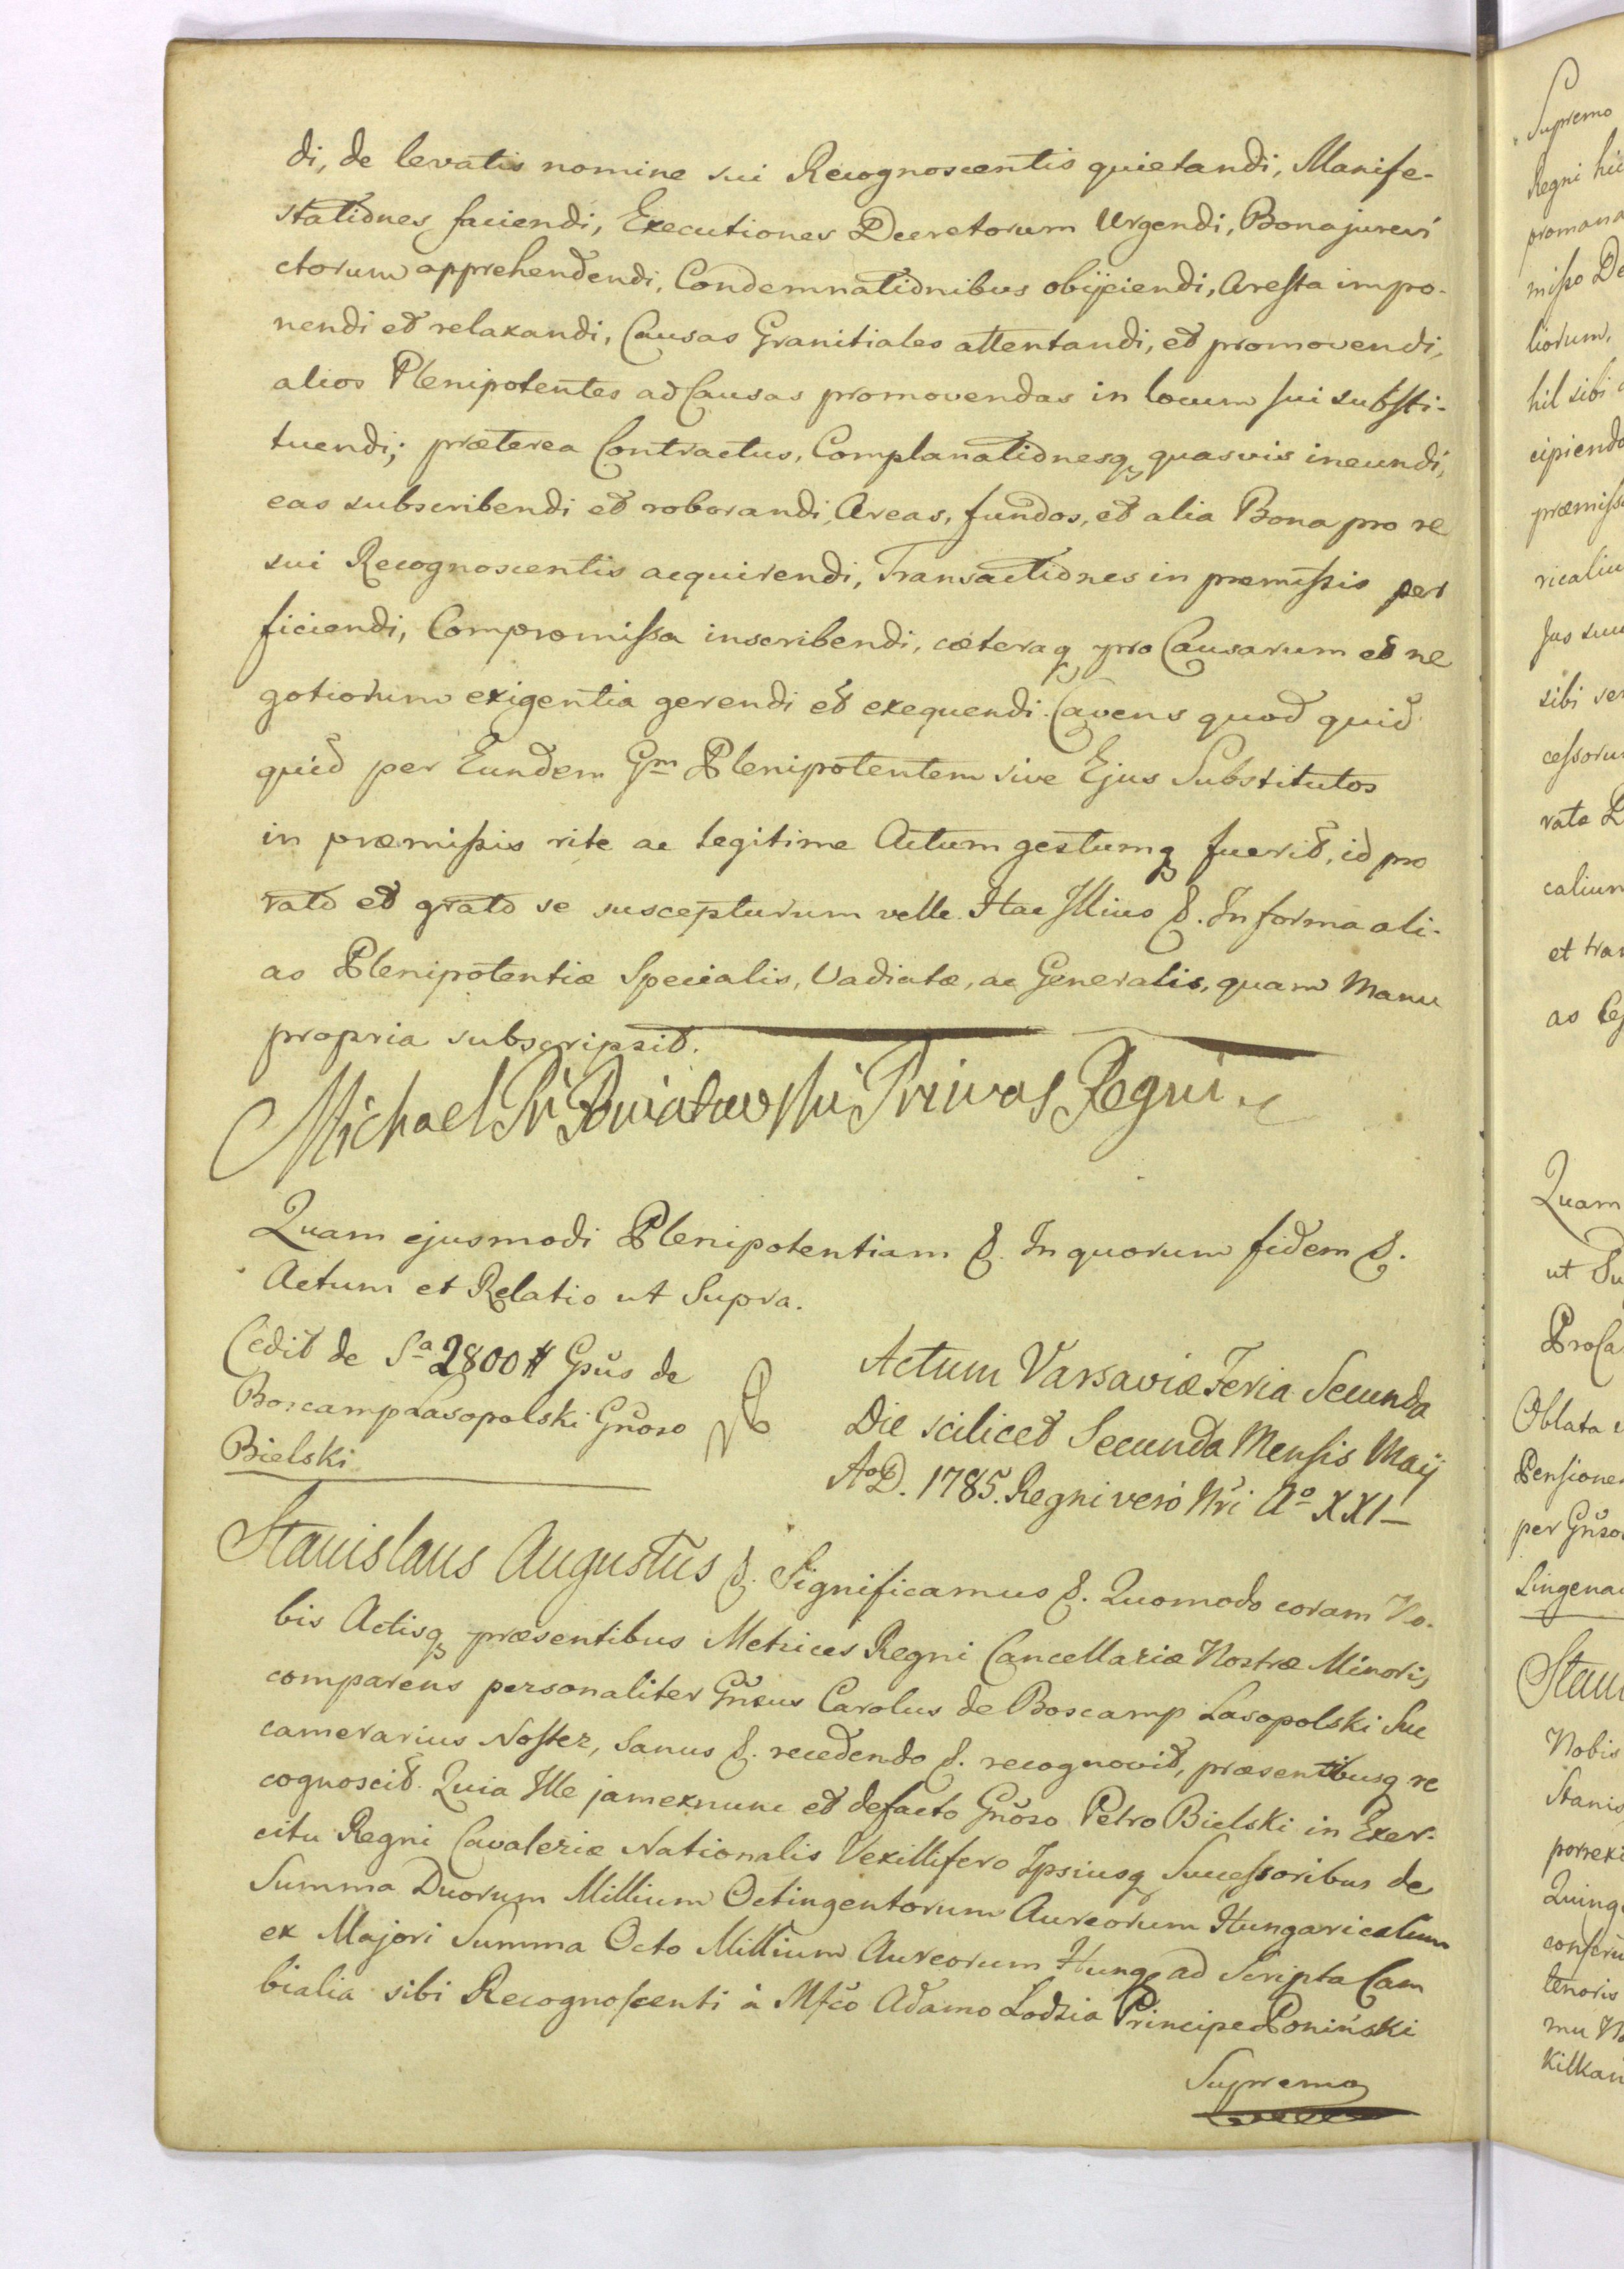 di, de levatis nomine sui Recognoscentis quietandi, Manife-
stationes faciendi, Executiones Decretorum Urgendi, Bona jurevi
ctorum apprehendendi, Condemnationibus obijciendi, Aresta impo-
nendi et relaxandi, Causas Granitiales attentandi, et promovendi,
alios Plenipotentes ad Causas promovendas in locum sui substi-
tuendi; præterea Contractus, Complanationesq quasvis ineundi,
eas subscribendi et roborandi, Areas, fundos, et alia Bona pro re
sui Recognoscentis acquirendi, Transactiones in præmissis per
ficiendi, Compromissa inscribendi, cæteraq pro Causarum et ne
gotiorum exigentia gerendi et exequendi. Cavens quod quid
quid per Eundem Gm Plenipotentem sive Ejus Substitutos
in præmissis rite ac legitime Actum gestumq fuerit, id pro
rato et grato se suscepturum velle. Hac Illius &. In forma ali-
as Plenipotentiæ Specialis, Vadiatæ, ac Generalis, quam Manu
propria subscripsit.
Michael Pr Poniatowski Primas Regni
Quam ejusmodi Plenipotentiam &. In quorum fidem &.
Actum et Relatio ut Supra.
Cedit de Sa 2800 # Gsus de
Boscamp Lasopolski Gnoso
Bielski
Actum Varsaviæ Feria Secunda
Die scilicet Secunda Mensis Maij
Ao D. 1785. Regni vero Nri Ao XXI
Stanislaus Augustus &. Significamus &. Quomodo coram No-
bis Actisq præsentibus Metrices Regni Cancellariæ Nostræ Minoris,
comparens personaliter Gnsus Carolus de Boscamp Lasopolski Suc
camerarius Noster, Sanus &. recedendo &. recognovit, præsentibusq re
cognoscit. Quia Ille jam exnunc et defacto Gnoso Petro Bielski in Exer-
citu Regni Cavaleriæ Nationalis Vexillifero Ipsiusq Successoribus de
Summa Duorum Millium Octingentorum Aureorum Hungaricalium
ex Majori Summa Octo Millium Aureorum Hung ad Scripta Cam
bialia sibi Recognoscenti à Mfco Adamo Lodzia Principe Poniński
Supremo